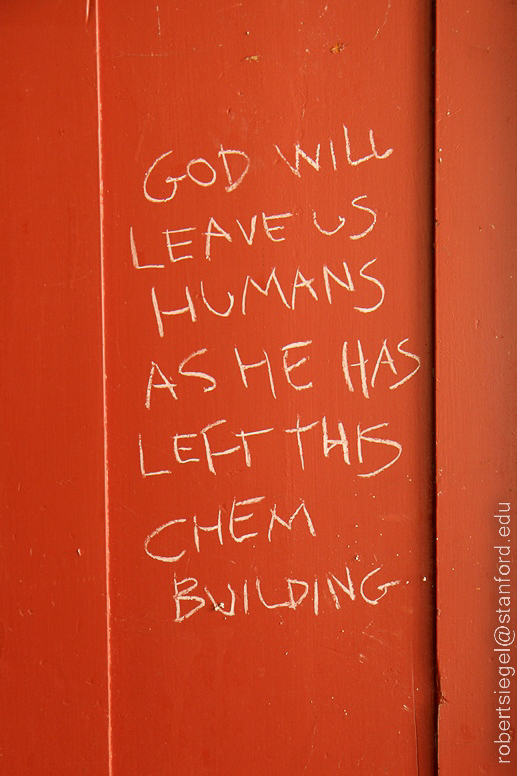 GOD WILL
LEAVE US
HUMANS
AS HE HAS
LEFT THIS
CHEM
BUILDING
robertsiegel@stanford.edu